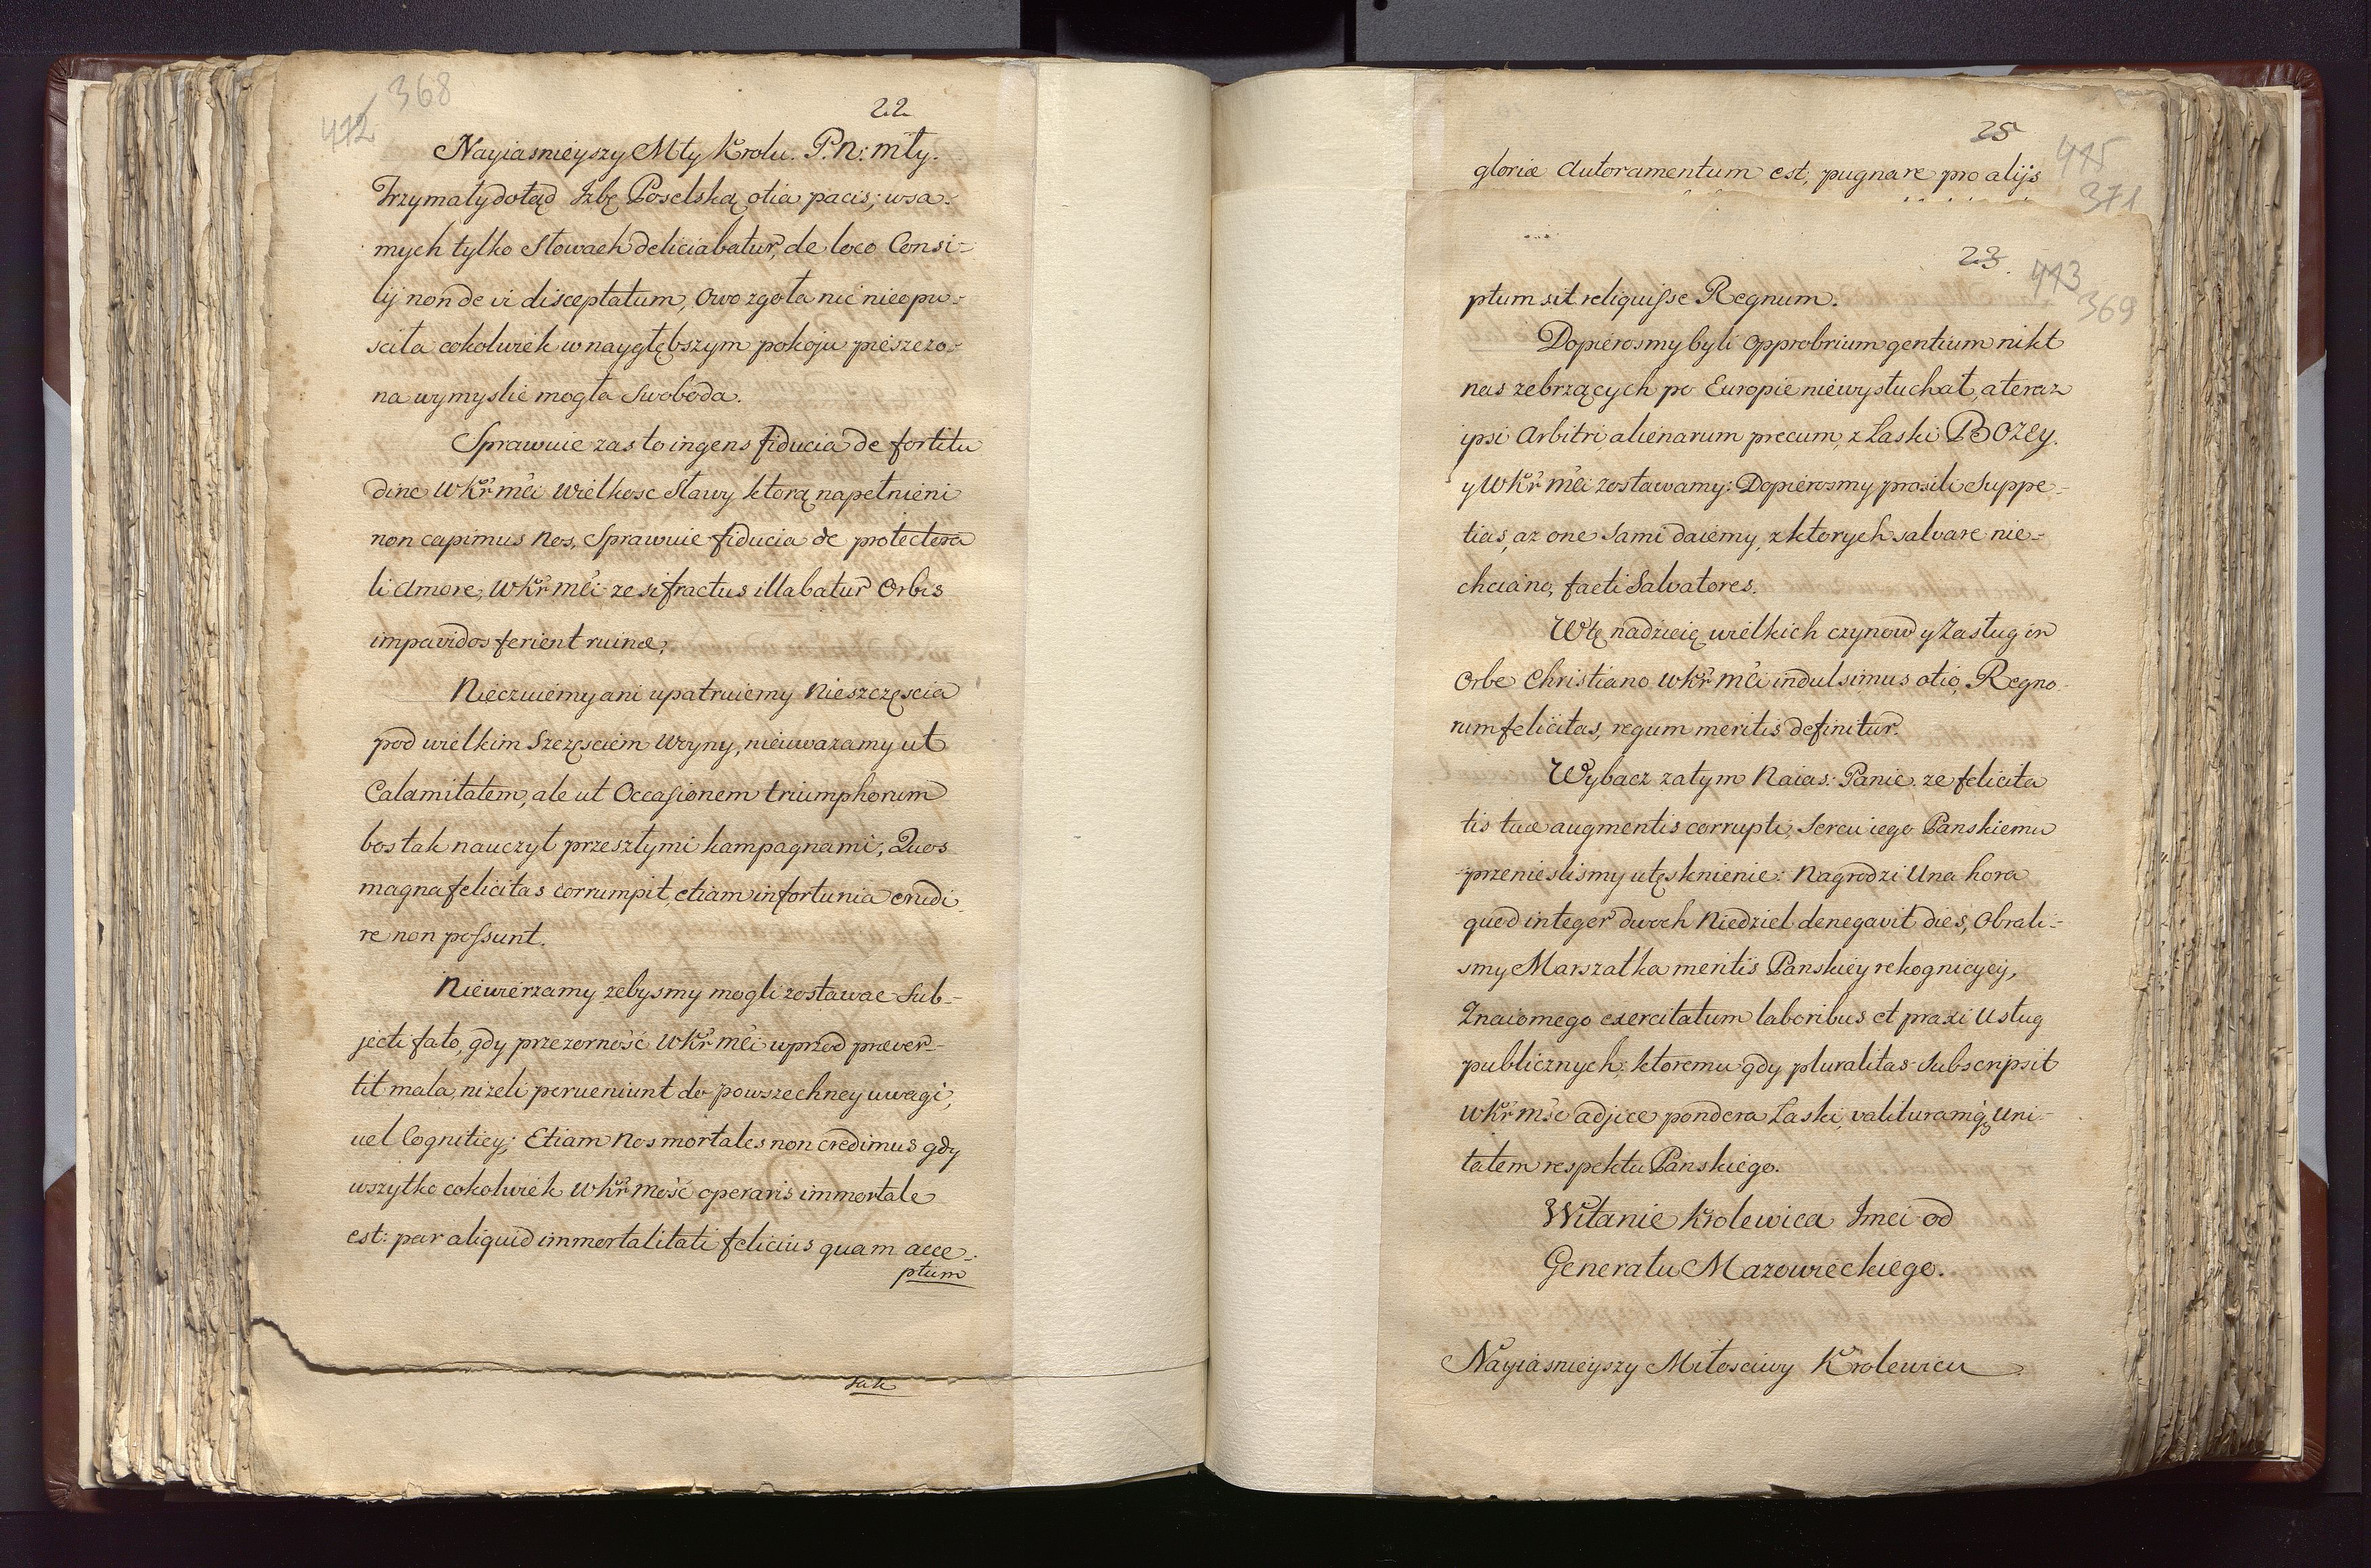 368
472
22
Nayiasnieyszy Mły Krolu. P. n: mły.
Trzymały dotąd Jzbę Poselską otia pacis; w sa-
mych tylko słowach deliciabatur, de loco Consi-
lij non de vi disceptatum, owo zgoła nic nieopu-
sciła cokolwiek w naygłębszym pokoju pieszczo-
na wymyslić mogła swoboda.
Sprawuie zas to ingens fiducia de fortitu
dine WKr mći wielkosc sławy ktorą napełnieni
non capimus nos, sprawuie fiducia de protectora
li amore, WKr mći ze si fractus illabatur Orbis
impavidos ferient ruinæ.
Nieczuiemy ani upatruiemy nieszczęscia
pod wielkim szczęsciem Woyny, nieuwazamy ut
Calamitatem, ale ut Occasionem triumphorum
bos tak nauczył przeszłymi kampagnami, Quos
magna felicitas corrumpit, etiam infortunia erudi
re non possunt.
Niewierzamy zebysmy mogli zostawac sub-
jecti fato, gdy przezorność WKr mći wprzod præver-
tit mala, nizeli perveniunt do powszechney uwagi,
vel Cognitiey; Etiam nos mortales non credimus gdy
wszytko cokolwiek WKr mość operaris immortale
est: par aliquid immortalitati felicius quam acce-
ptum
25
415
371
gloriæ autoramentum est, pugnare pro alijs
23.
413
369
ptum sit reliquisse Regnum.
Dopierosmy byli opprobrium gentium nikt
nas zebrzących po Europie niewysłuchał, a teraz
ipsi Arbitri alienarum precum, z Łaski BOZEY.
y WKr mći zostawamy: Dopierosmy prosili suppe-
tias, az one sami daiemy, z ktorych salvare nie-
chciano, facti Salvatores.
W tę nadzieię wielkich czynow y Zasług in
Orbe Christiano WKr mći indulsimus otio, Regno-
rum felicitas, regum meritis definitur.
Wybacz zatym Naias: Panie. ze felicita
tis tuæ augmentis corrupti, sercu iego Panskiemu
przenieslismy utęsknienie: Nagrodzi una hora
quod integer dwoch Niedziel denegavit dies, obrali-
smy Marszałka meritis Panskiey rekognicyey,
Znaiomego exercitatum laboribus et praxi Usług
publicznych; ktoremu gdy pluralitas subscripsit
WKr mść adjice pondera Łaski, valituramq Uni-
tatem respektu Panskiego.
Witanie Krolewica Jmci od
Generału Mazowieckiego.
Nayiasnieyszy Miłosciwy Krolewicu